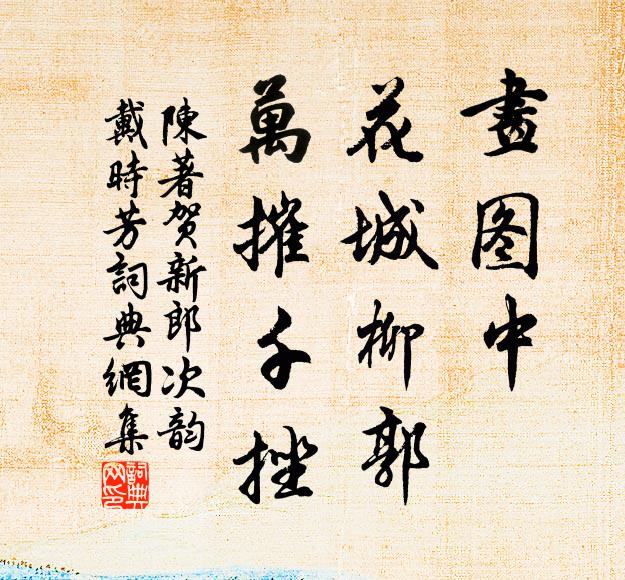 畫图中
花城柳郭
萬摧千挫
陳著賀新郎次韵
戴時芳詞典網集
詞典网印